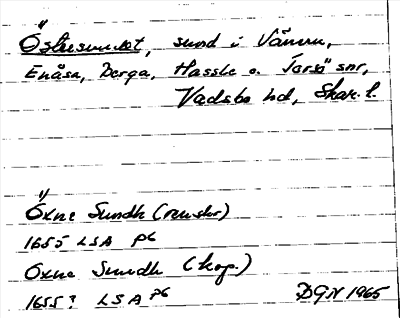 Östersundet, sund i Vänern,
Enåsa, Berga, Hassle o. Torsö snr,
Vadsbo hd, Skar. l.
Öxne Sundh (renskr)
1655 LSA P6
Oxne Sundh (kop.)
1655? LSA P6 DGN 1965